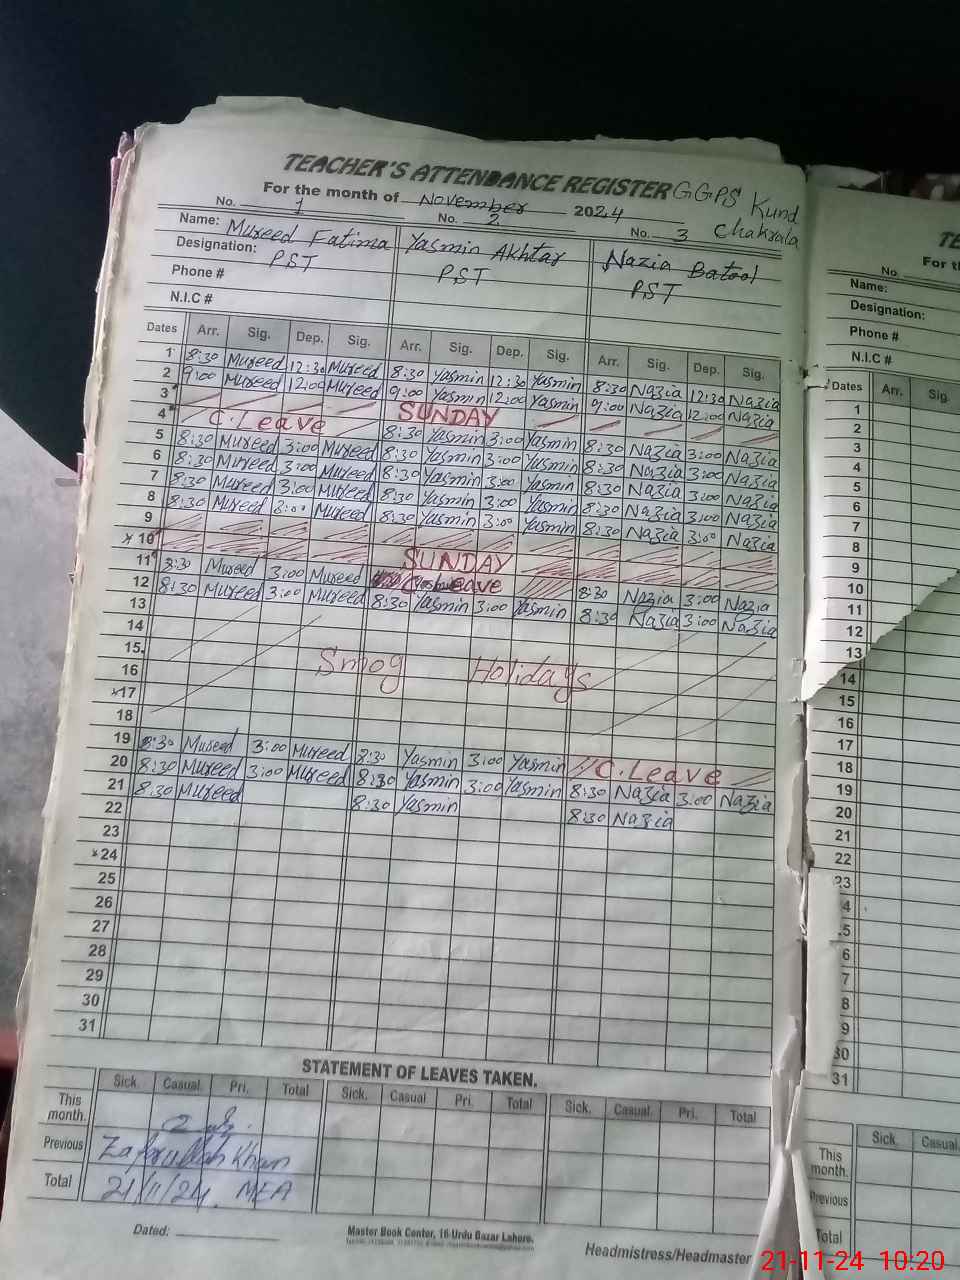 TEACHER'S ATTENDANCE REGISTER GGPS Kund
For the month of November 2024 Chakrala
No. 1 No. 2 No. 3
Name: Mureed Fatima Yasmin Akhtar Nazia Batool
Designation: PST PST PST
Phone #
N.I.C #
Dates Arr. Sig. Dep. Sig. Arr. Sig. Dep. Sig. Arr. Sig. Dep. Sig.
1 8:30 Mureed 12:30 Mureed 8:30 Yasmin 12:30 Yasmin 8:30 Nazia 12:30 Nazia
2 9:00 Mureed 12:00 Mureed 9:00 Yasmin 12:00 Yasmin 9:00 Nazia 12:00 Nazia
3 SUNDAY
4 C.Leave 8:30 Yasmin 3:00 Yasmin 8:30 Nazia 3:00 Nazia
5 8:30 Mureed 3:00 Mureed 8:30 Yasmin 3:00 Yasmin 8:30 Nazia 3:00 Nazia
6 8:30 Mureed 3:00 Mureed 8:30 Yasmin 3:00 Yasmin 8:30 Nazia 3:00 Nazia
7 8:30 Mureed 3:00 Mureed 8:30 Yasmin 3:00 Yasmin 8:30 Nazia 3:00 Nazia
8 8:30 Mureed 3:00 Mureed 8:30 Yasmin 3:00 Yasmin 8:30 Nazia 3:00 Nazia
9
10 SUNDAY
11 8:30 Mureed 3:00 Mureed Leave 8:30 Nazia 3:00 Nazia
12 8:30 Mureed 3:00 Mureed 8:30 Yasmin 3:00 Yasmin 8:30 Nazia 3:00 Nazia
13
14
15
16 Smog Holidays
17
18
19 8:30 Mureed 3:00 Mureed 8:30 Yasmin 3:00 Yasmin C.Leave
20 8:30 Mureed 3:00 Mureed 8:30 Yasmin 3:00 Yasmin 8:30 Nazia 3:00 Nazia
21 8:30 Mureed 8:30 Yasmin 8:30 Nazia
22
23
24
25
26
27
28
29
30
31
STATEMENT OF LEAVES TAKEN.
Sick. Casual. Pri. Total Sick. Casual Pri. Total Sick. Casual. Pri. Total
This month.
Previous Zafarullah Khan
Total 21/11/24 MEA
Dated:
Master Book Center, 16-Urdu Bazar Lahore.
Headmistress/Headmaster
No.
Name:
Designation:
Phone #
N.I.C #
Dates Arr. Sig.
1
2
3
4
5
6
7
8
9
10
11
12
13
14
15
16
17
18
19
20
21
22
23
4
5
6
7
8
9
30
31
Sick. Casual.
This month.
Previous
Total
21-11-24 10:20